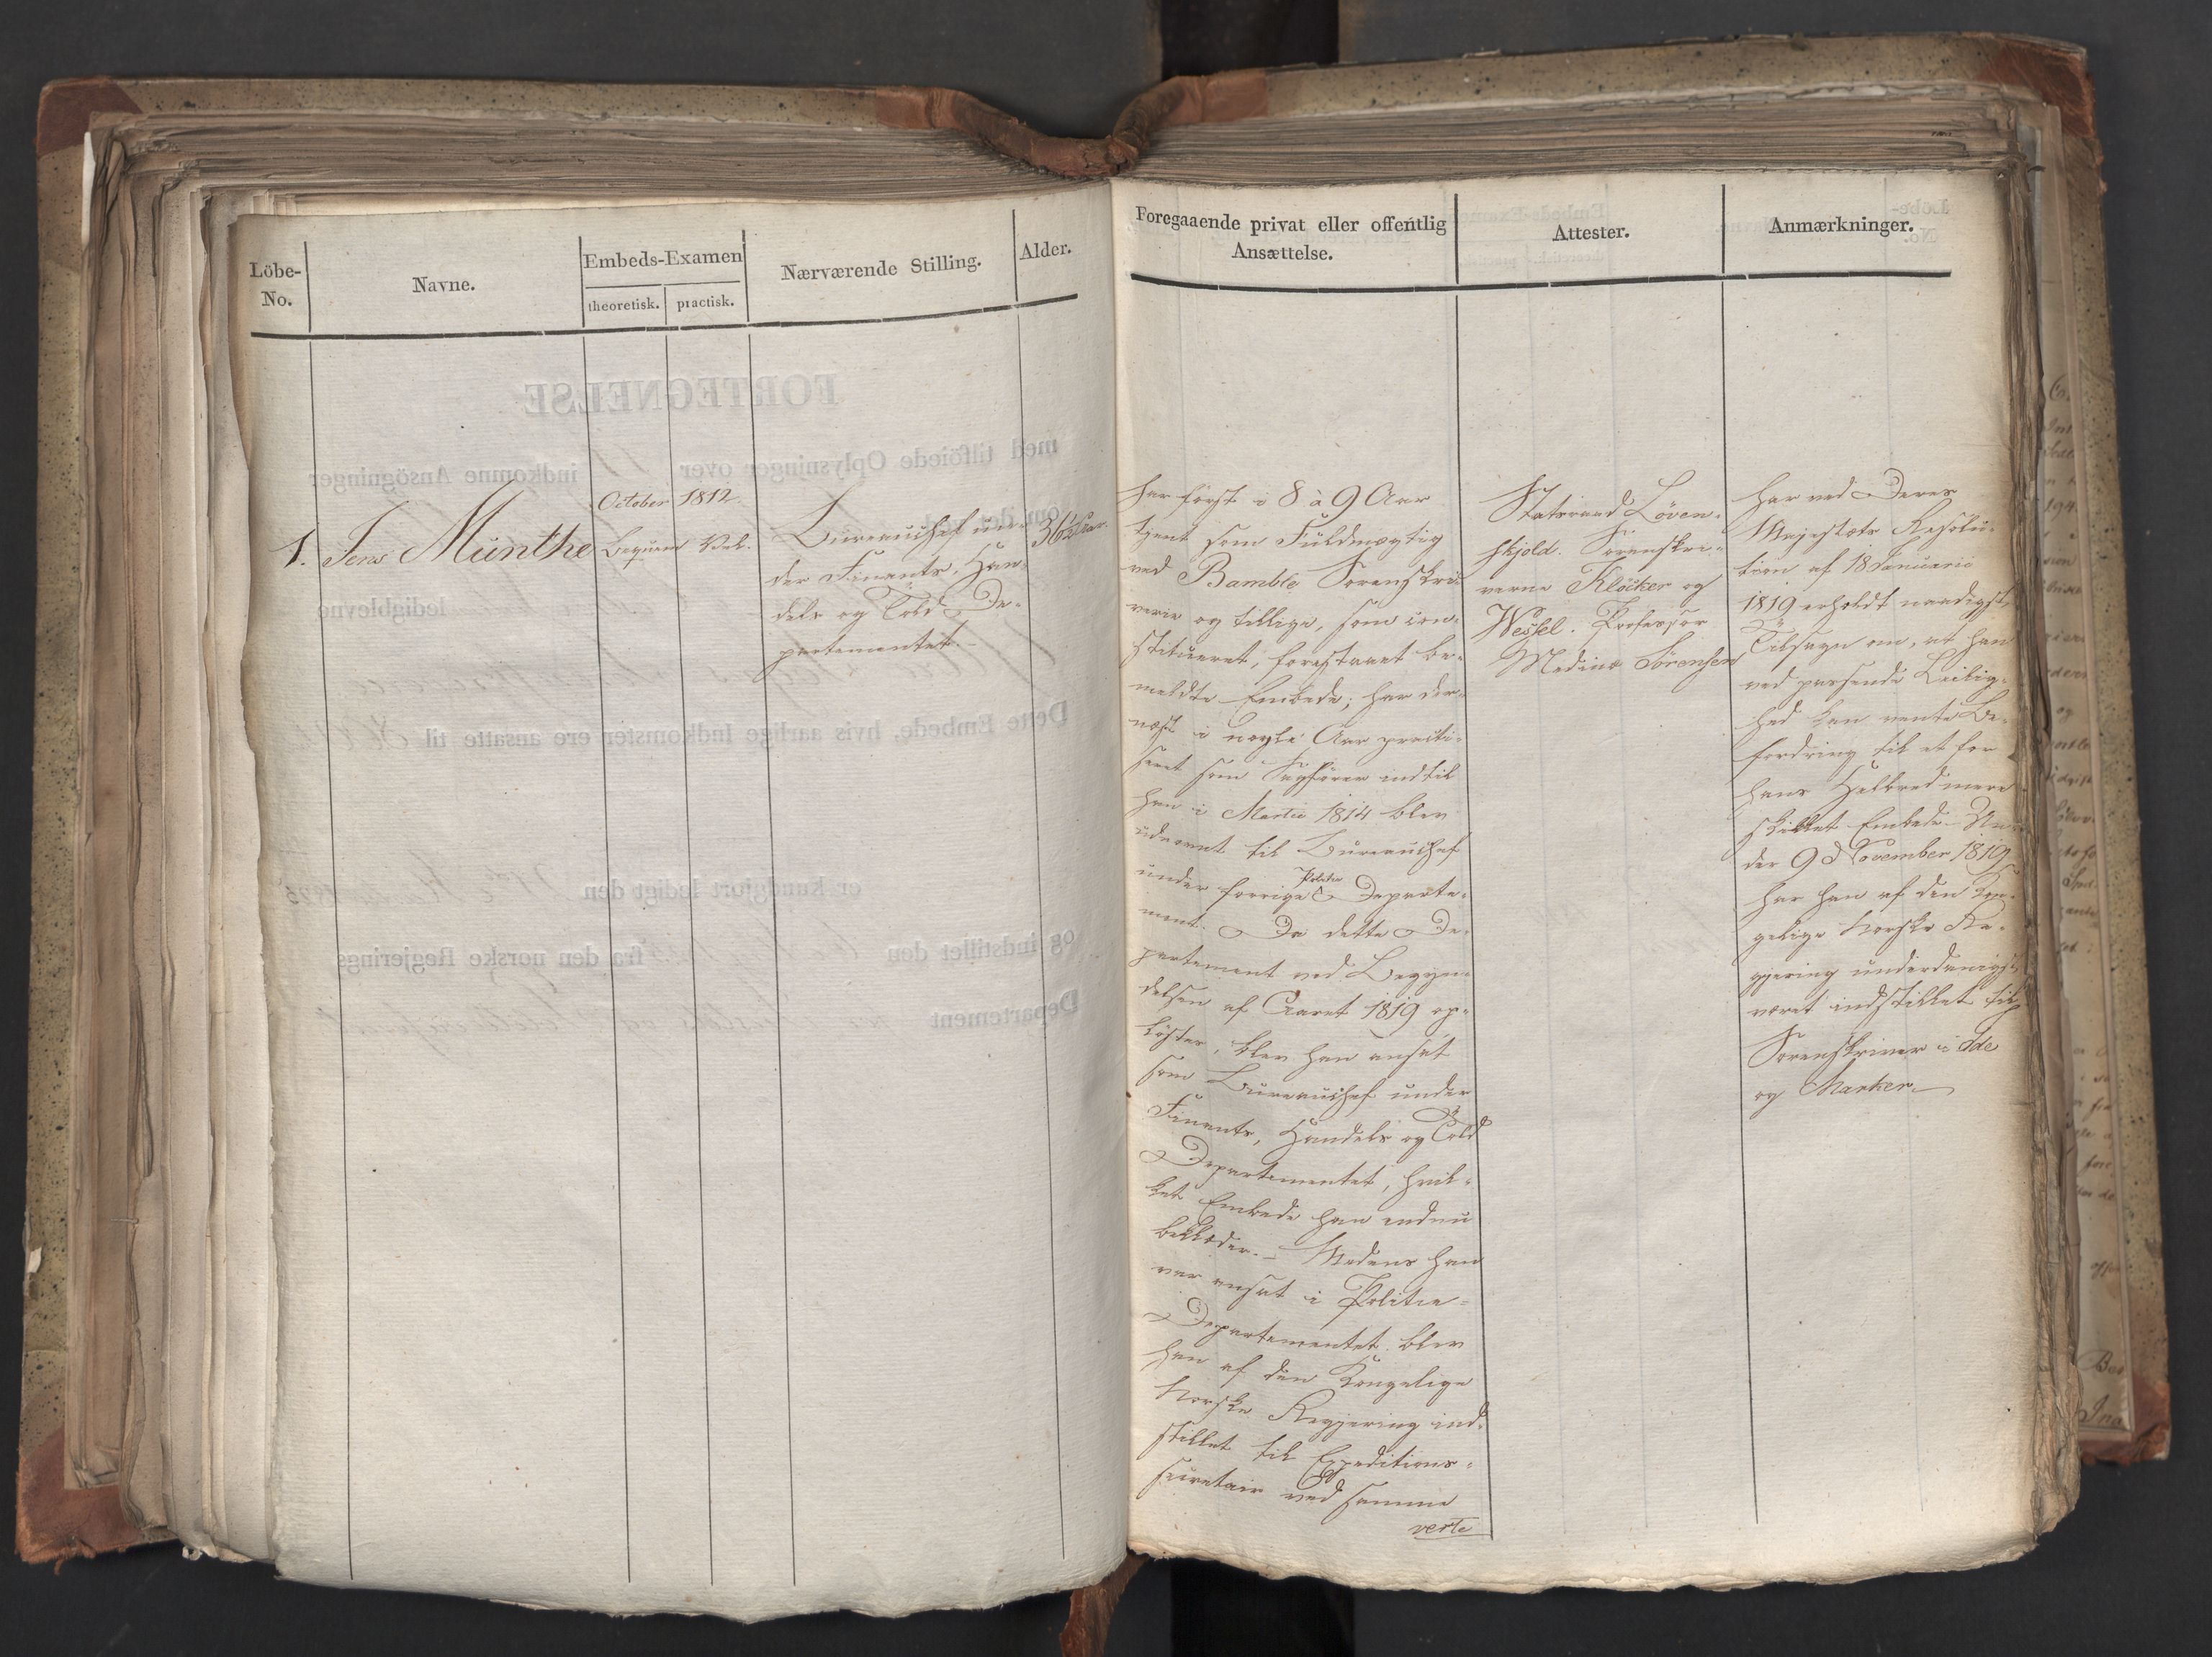 Löbe-
No.
Navne.
Embeds-Examen
theoretisk.
practisk.
Nærværende Stilling.
Alder.
October 1812.
1. Jens Münthe
beqvem
Vel.
Büreauchef un-
der Finants, Han-
dels og Told De-
partementet.-
36 Aar.
Foregaaende privat eller offentlig
Ansættelse.
Attester.
Anmærkninger.
har först i 8 à 9 Aar
tjent som Füldmægtig
ved Bamble Sorenskri-
verie og tillige, som con-
stitueret, forestaaet be-
meldte Embede; har der-
næst i nogle Aar practi-
seret som Sagförer indtil
han i Martii 1814 blev
üdnævnt til Büreauchef
ünder forrige Politie Departe-
ment. Da dette De-
partement ved Begyn-
delsen af Aaret 1819 op-
löstes, blev han ansat
som Büreauchef under
Finants, Handels og Told
Departementet, hvil-
ket Embede han endnu
beklæder.- Medens han
var ansat i Politie-
Departementet blev
han af den Kongelige
Norske Regjering ind-
stillet til Expeditions-
secretair ved samme
verte
Statsraad Löven-
skjold. Sorenskri-
verne Klöcker og
Wessel. Professor
Medinæ Sörensen
har ved Deres
Majestæts Resolü-
tion af 18 Januarii
1819 erholdt naadigst
Tilsagn om, at han
ved passende Leilig-
hed kan vente Be-
fordring til et for
hans Helbred mere
skikket Embede. Un-
der 9d November 1819
har han af den Kon-
gelige Norske Re-
gjering ünderdanigst
været indstillet til
Sorenskriver i Idde
og Marker.